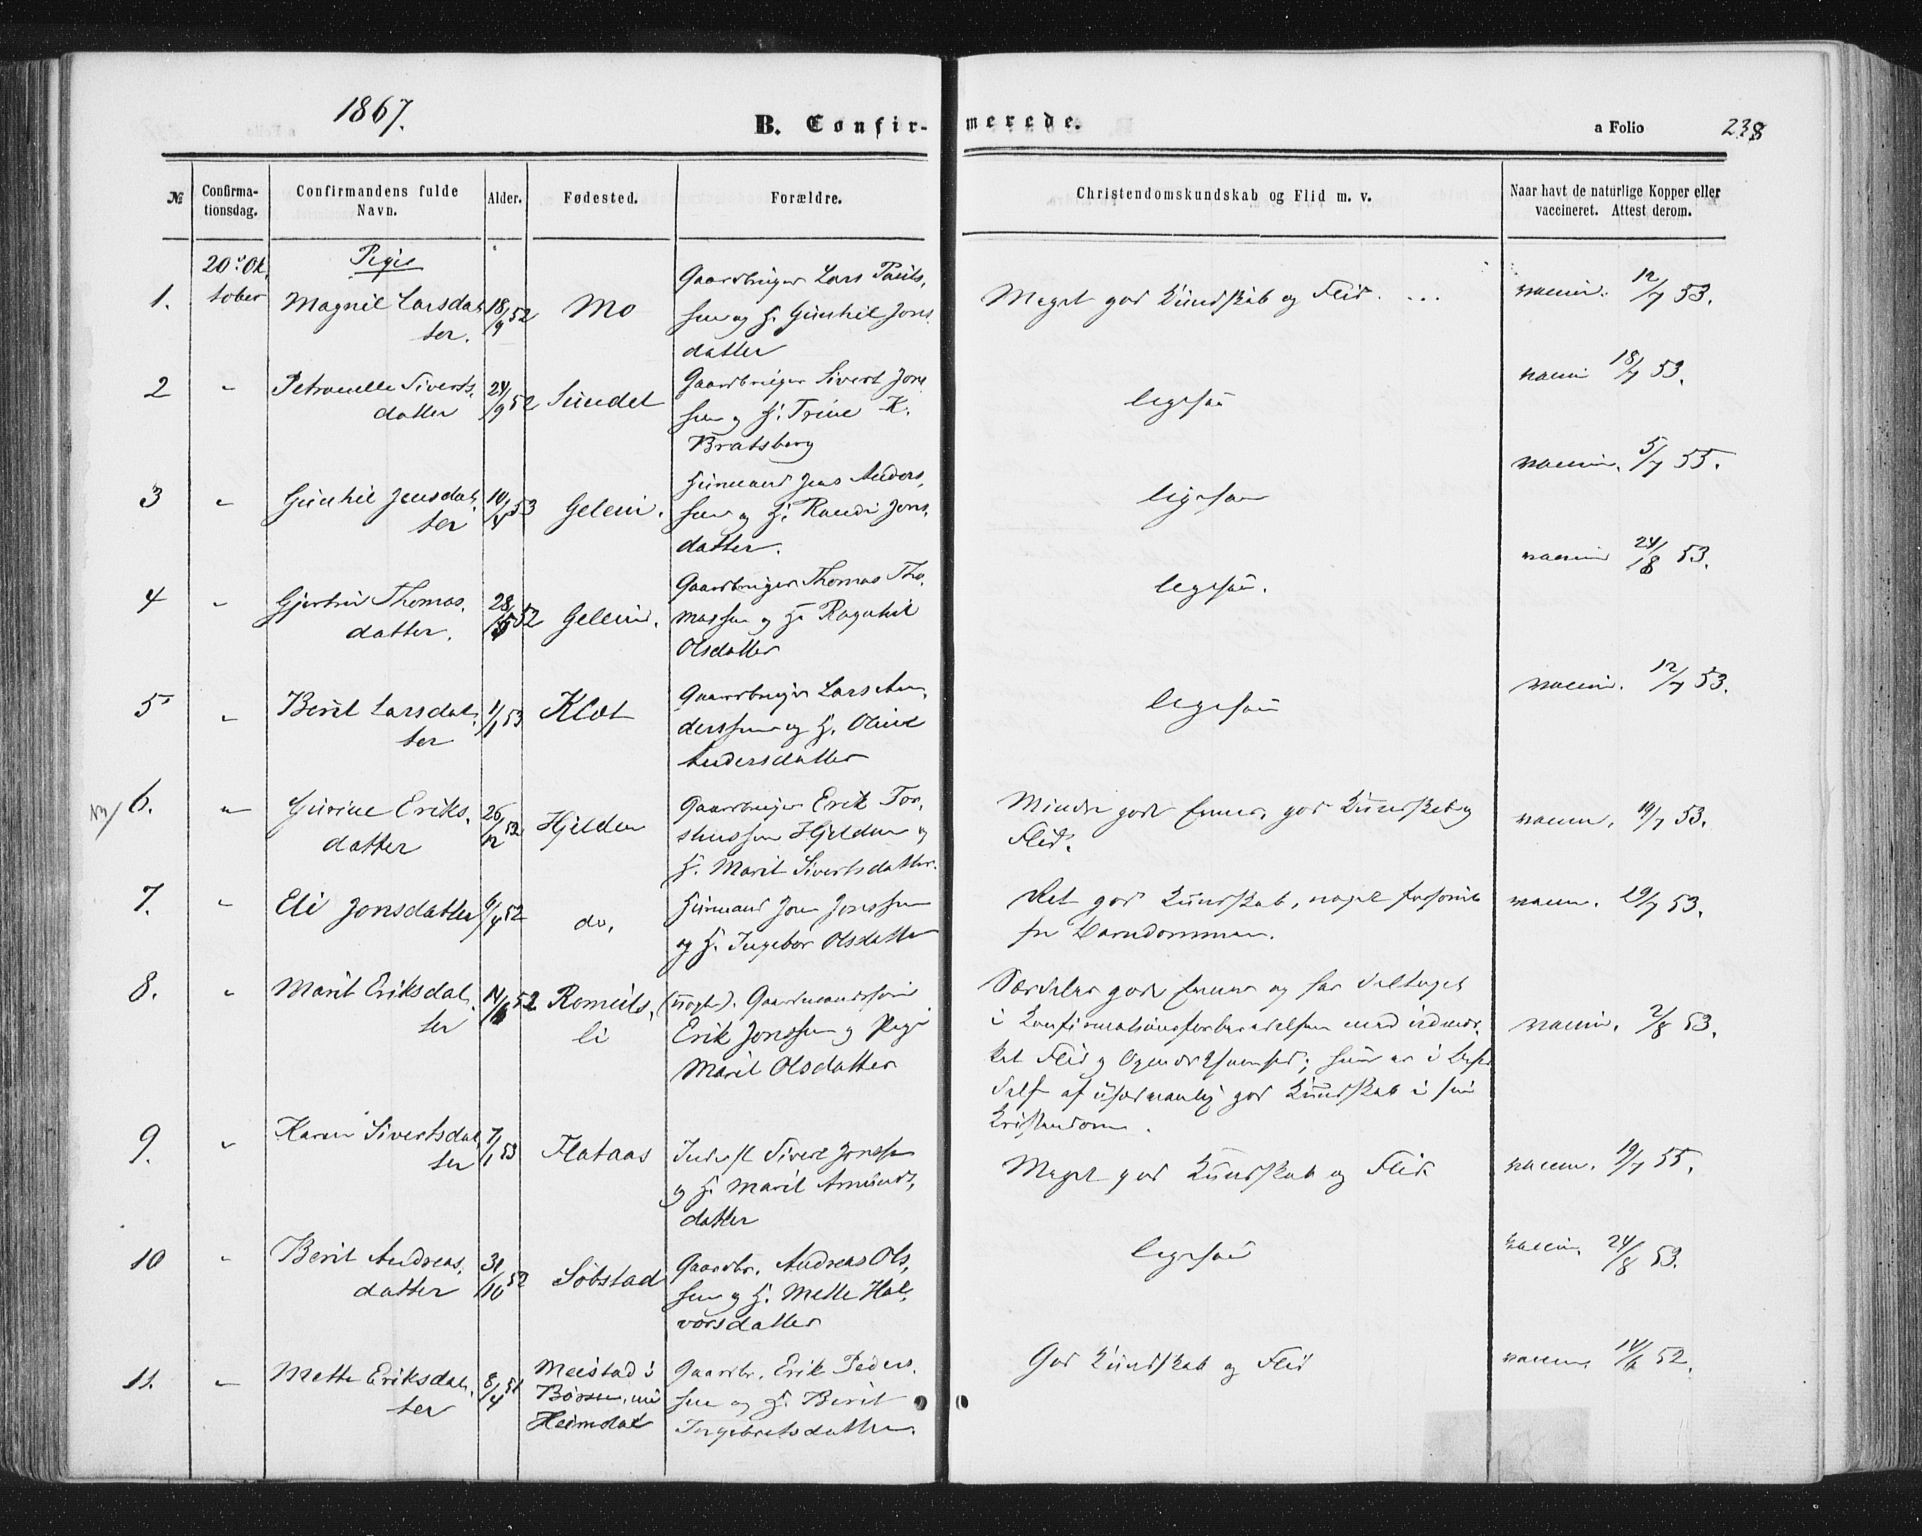 1867.
B. Confir-
merede.
a Folio 238
№
Confirma-
tionsdag.
Confirmandens fulde
Navn.
Alder.
Fødested.
Forældre.
Christendomskundskab og Flid m. v.
Naar havt de naturlige Kopper eller
vaccineret. Attest derom.
20de Ok-
tober
Piger
1. Magnil Larsdat-
ter.
18/9 52
Mo
Gaardbruger Lars Pauls-
sen og H. Gunhil Jons-
datter
Meget god Kundskab og Flid.
vaccin. 12/7 53.
2 " Petronelle Siverts-
datter
24/9 52
Sundet
Gaardbruger Sivert Jon-
sen og H. Trine K.
Bratsberg
ligesaa
vaccin 18/7 53.
3 " Gunhil Jensdat-
ter
10/4 53
Gelein.
Huusmand Jens Anders-
sen og H. Randi Jons-
datter.
ligesaa
vaccin. 5/7 55.
4 " Gjertru Thomas-
datter.
28/5 52
Gelein.
Gaardbruger Thomas Tho-
massen og H. Ragnhil
Olsdatter
ligesaa.
vaccin 24/8 53.
5 " Berit Larsdat-
ter
1/1 53
Klæt
Gaardbruger Lars An-
derssen og H. Oline
Andersdatter
ligesaa
vaccin. 12/7 53.
6. " Gurine Eriks-
datter
26/12 52
Hjelden
Gaardbruger Erik Tor-
stenssen Hjelden og
H. Marit Sivertsdatter.
Mindre gode Evner, god Kundskab og
Flid.
vaccin. 19/7 53.
7. " Eli Jonsdatter
9/4 52
do.
Huusmand Jon Jonssen
og H. Ingebor Olsdatter
Ret god Kundskab, noget forsømt
fra Barndommen.
vaccin. 29/7 53.
8. " Marit Eriksdat-
ter
14/6 52
Romuls-
li
(uægte). Gaardmandssøn
Erik Jonssen og Pige
Marit Olsdatter
Særdeles gode Evner og har deltaget
i Konfirmationsforberedelsen med udmær-
ket Flid og Opmærksomhed; hun er i Besid-
delse af usædvanlig god Kundskab i sin
Kristendom.
vaccin. 2/8 53.
9. " Karen Sivertsdat-
ter
7/1 53
Flataas
Inderst Sivert Jonssen
og H. Marit Amunds-
datter
Meget god Kundskab og Flid
vaccin. 19/7 55.
10 " Berit Andreas-
datter
31/10 52
Sobstad
Gaardbr. Andreas Ols-
sen og H. Mette Hal-
vorsdatter
ligesaa
vaccin. 24/8 53.
11. " Mette Eriksdat-
ter
8/4 51
Meistad i
Børsen, nu
Heimdal
Gaardbr. Erik Peders-
sen og H. Berit
Ingebretsdatter.
God Kundskab og Flid
vaccin 14/6 52.